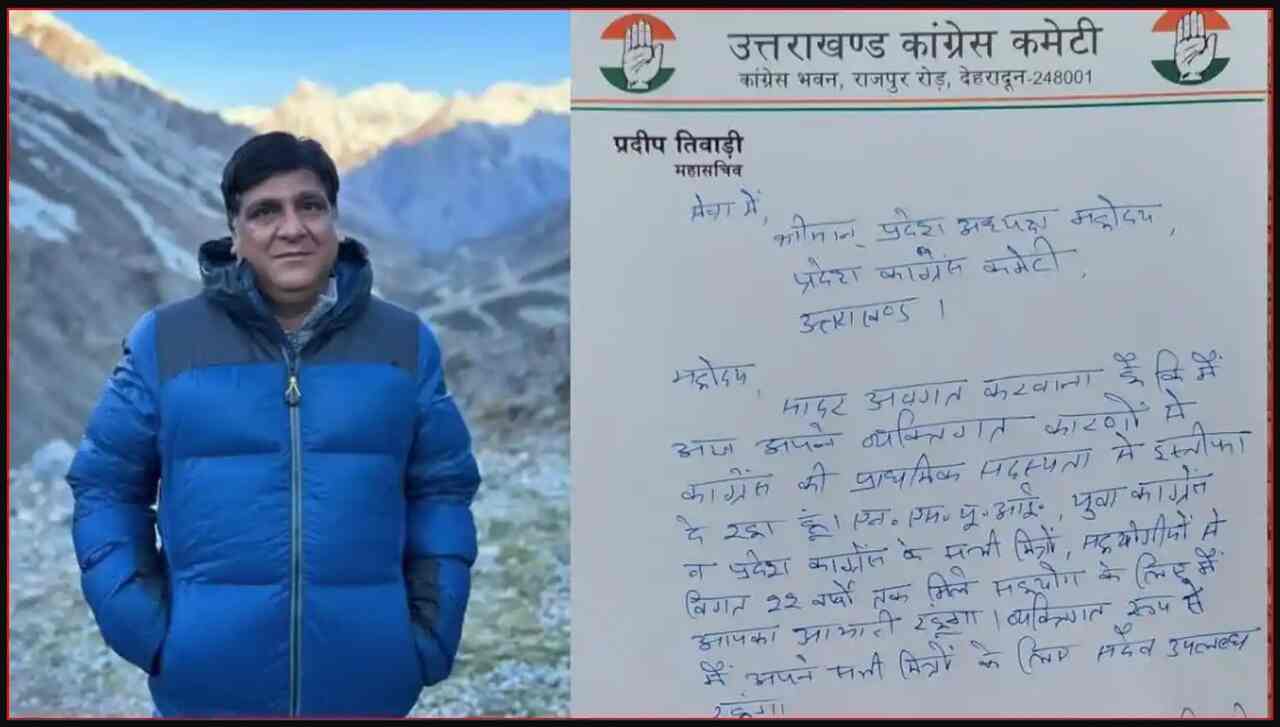 उत्तराखण्ड कांग्रेस कमेटी
कांग्रेस भवन, राजपुर रोड़, देहरादून-248001
प्रदीप तिवाड़ी
महासचिव
सेवा में,
श्रीमान् प्रदेश अध्यक्ष महोदय,
प्रदेश कांग्रेस कमेटी,
उत्तराखण्ड।
महोदय,
सादर अवगत करवाना है कि मैं
आज अपने व्यक्तिगत कारणों से
कांग्रेस की प्राथमिक सदस्यता से इस्तीफा
दे रहा हूं। एन.एस.यू.आई., युवा कांग्रेस
व प्रदेश कांग्रेस के सभी मित्रों, सहयोगीयों से
विगत 22 वर्षों तक मिले सहयोग के लिए मैं
आपका आभारी रहूंगा। व्यक्तिगत रूप से
मैं अपने सभी मित्रों के लिए सदैव उपलब्ध
रहूंगा